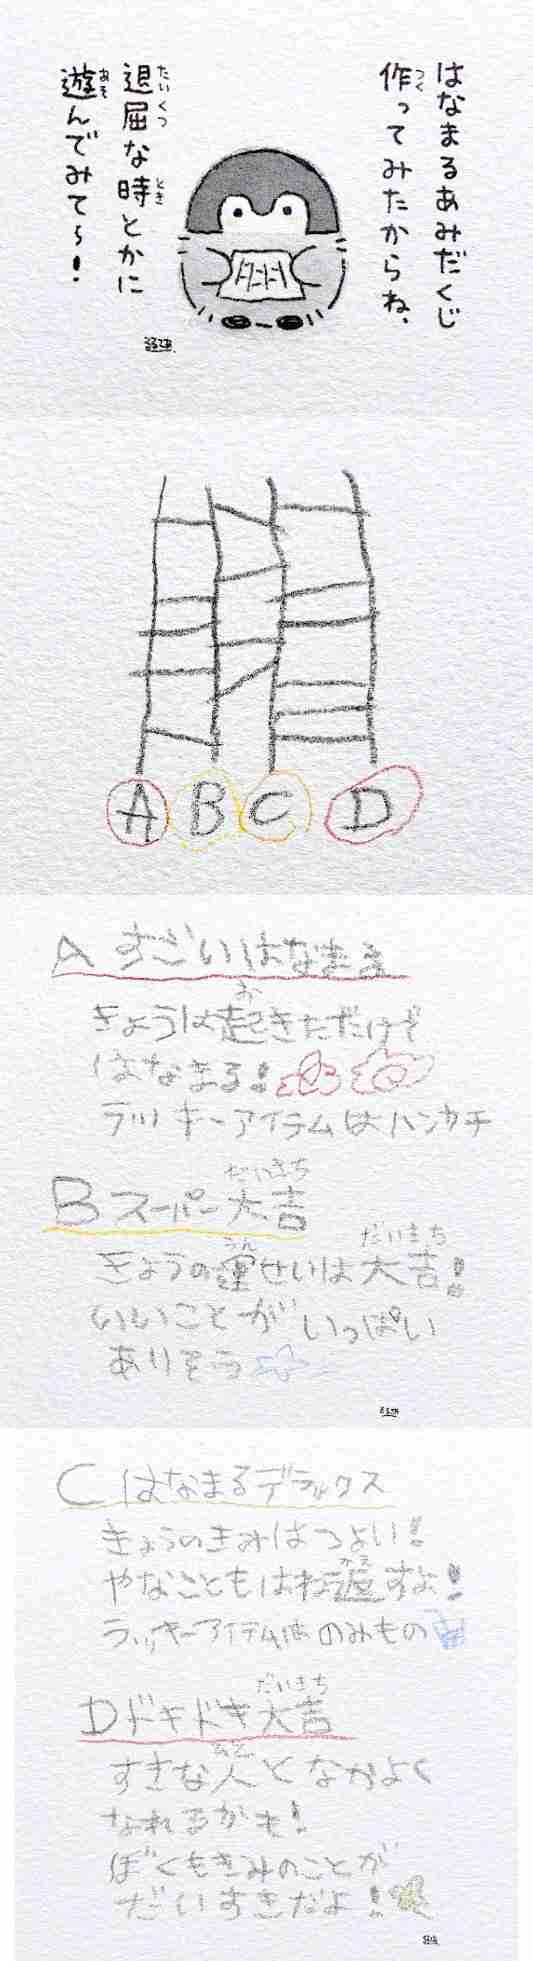 はなまるあみだくじ
作ってみたからね、
退屈な時とかに
遊んでみて〜!
A
B
C
D
A すごいはなまる
きょうは起きただけで
はなまる!
ラッキーアイテムはハンカチ
B スーパー大吉
きょうの運せいは大吉!
いいことがいっぱい
ありそう
C はなまるデラックス
きょうのきみはつよい!
やなこともはね返すよ!
ラッキーアイテムは のみもの
D ドキドキ大吉
すきな人となかよく
なれるかも!
ぼくもきみのことが
だいすきだよ!